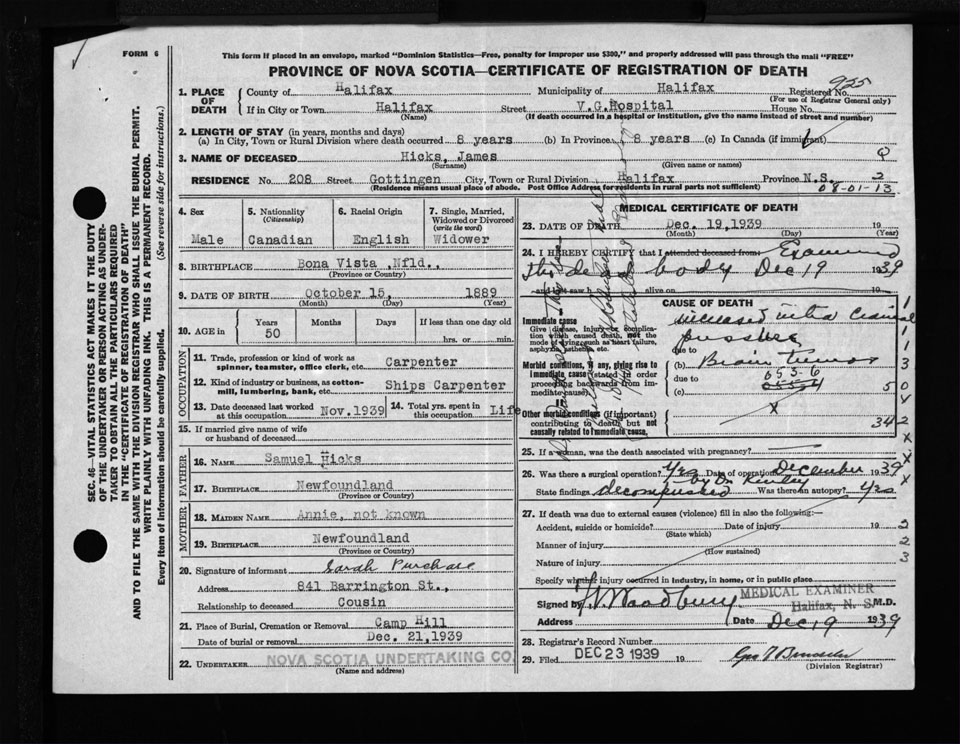 FORM 6
This form if placed in an envelope, marked "Dominion Statistics—Free, penalty for improper use $300," and properly addressed will pass through the mail "FREE"
PROVINCE OF NOVA SCOTIA—CERTIFICATE OF REGISTRATION OF DEATH
925
1. PLACE OF DEATH
County of Halifax Municipality of Halifax Registered No.
(For use of Registrar General only)
If in City or Town Halifax Street V.G.Hospital House No.
(Name) (If death occurred in a hospital or institution, give the name instead of street and number)
2. LENGTH OF STAY (in years, months and days)
(a) In City, Town or Rural Division where death occurred 8 years (b) In Province 8 years (c) In Canada (if immigrant)
3. NAME OF DECEASED Hicks, James
(Surname) (Given name or names)
RESIDENCE No. 208 Street Gottingen City, Town or Rural Division Halifax Province N.S. 2
(Residence means usual place of abode. Post Office Address for residents in rural parts not sufficient) 08-01-13
4. Sex Male
5. Nationality (Citizenship) Canadian
6. Racial Origin English
7. Single, Married, Widowed or Divorced (write the word) Widower
8. BIRTHPLACE Bona Vista ,Nfld.,
(Province or Country)
9. DATE OF BIRTH October 15, 1889
(Month) (Day) (Year)
10. AGE in Years 50 Months Days If less than one day old hrs. or min.
OCCUPATION
11. Trade, profession or kind of work as spinner, teamster, office clerk, etc. Carpenter
12. Kind of industry or business, as cotton-mill, lumbering, bank, etc. Ships Carpenter
13. Date deceased last worked at this occupation Nov.1939
14. Total yrs. spent in this occupation Life
15. If married give name of wife or husband of deceased
FATHER
16. NAME Samuel Hicks
17. BIRTHPLACE Newfoundland
(Province or Country)
MOTHER
18. MAIDEN NAME Annie, not known
19. BIRTHPLACE Newfoundland
(Province or Country)
20. Signature of informant Sarah Purchase
Address 841 Barrington St.,
Relationship to deceased Cousin
21. Place of Burial, Cremation or Removal Camp Hill
Date of burial or removal Dec. 21,1939
22. UNDERTAKER NOVA SCOTIA UNDERTAKING CO.
(Name and address)
MEDICAL CERTIFICATE OF DEATH
23. DATE OF DEATH Dec. 19,1939 19
(Month) (Day) (Year)
24. I HEREBY CERTIFY that I attended deceased from Examined
the dead body Dec 19 1939
and last saw h alive on 19
CAUSE OF DEATH
Immediate cause
Give disease, injury or complication which caused death, not the mode of dying such as heart failure, asphyxia, asthenia, etc.
increased intra cranial pressure
due to
Morbid conditions, if any, giving rise to immediate cause (stated in order proceeding backwards from immediate cause).
(b) Brain tumor
due to 653-6
(c)
Other morbid conditions (if important) contributing to death but not causally related to immediate cause.
x
342
25. If a woman, was the death associated with pregnancy?
26. Was there a surgical operation? Yes Date of operation December 1939
by Dr
State findings decompressed Was there an autopsy? Yes
27. If death was due to external causes (violence) fill in also the following:—
Accident, suicide or homicide? Date of injury 19
(State which)
Manner of injury
(How sustained)
Nature of injury
Specify whether injury occurred in industry, in home, or in public place
MEDICAL EXAMINER
Signed by Woodbury Halifax, N. S. M.D.
Address Date Dec 19 1939
28. Registrar's Record Number
29. Filed DEC 23 1939 19
(Division Registrar)
SEC. 46—VITAL STATISTICS ACT MAKES IT THE DUTY
OF THE UNDERTAKER OR PERSON ACTING AS UNDER-
TAKER TO OBTAIN ALL THE PARTICULARS REQUIRED
IN THE "CERTIFICATE OF REGISTRATION OF DEATH"
AND TO FILE THE SAME WITH THE DIVISION REGISTRAR WHO SHALL ISSUE THE BURIAL PERMIT.
WRITE PLAINLY WITH UNFADING INK. THIS IS A PERMANENT RECORD.
Every item of information should be carefully supplied. (See reverse side for instructions.)